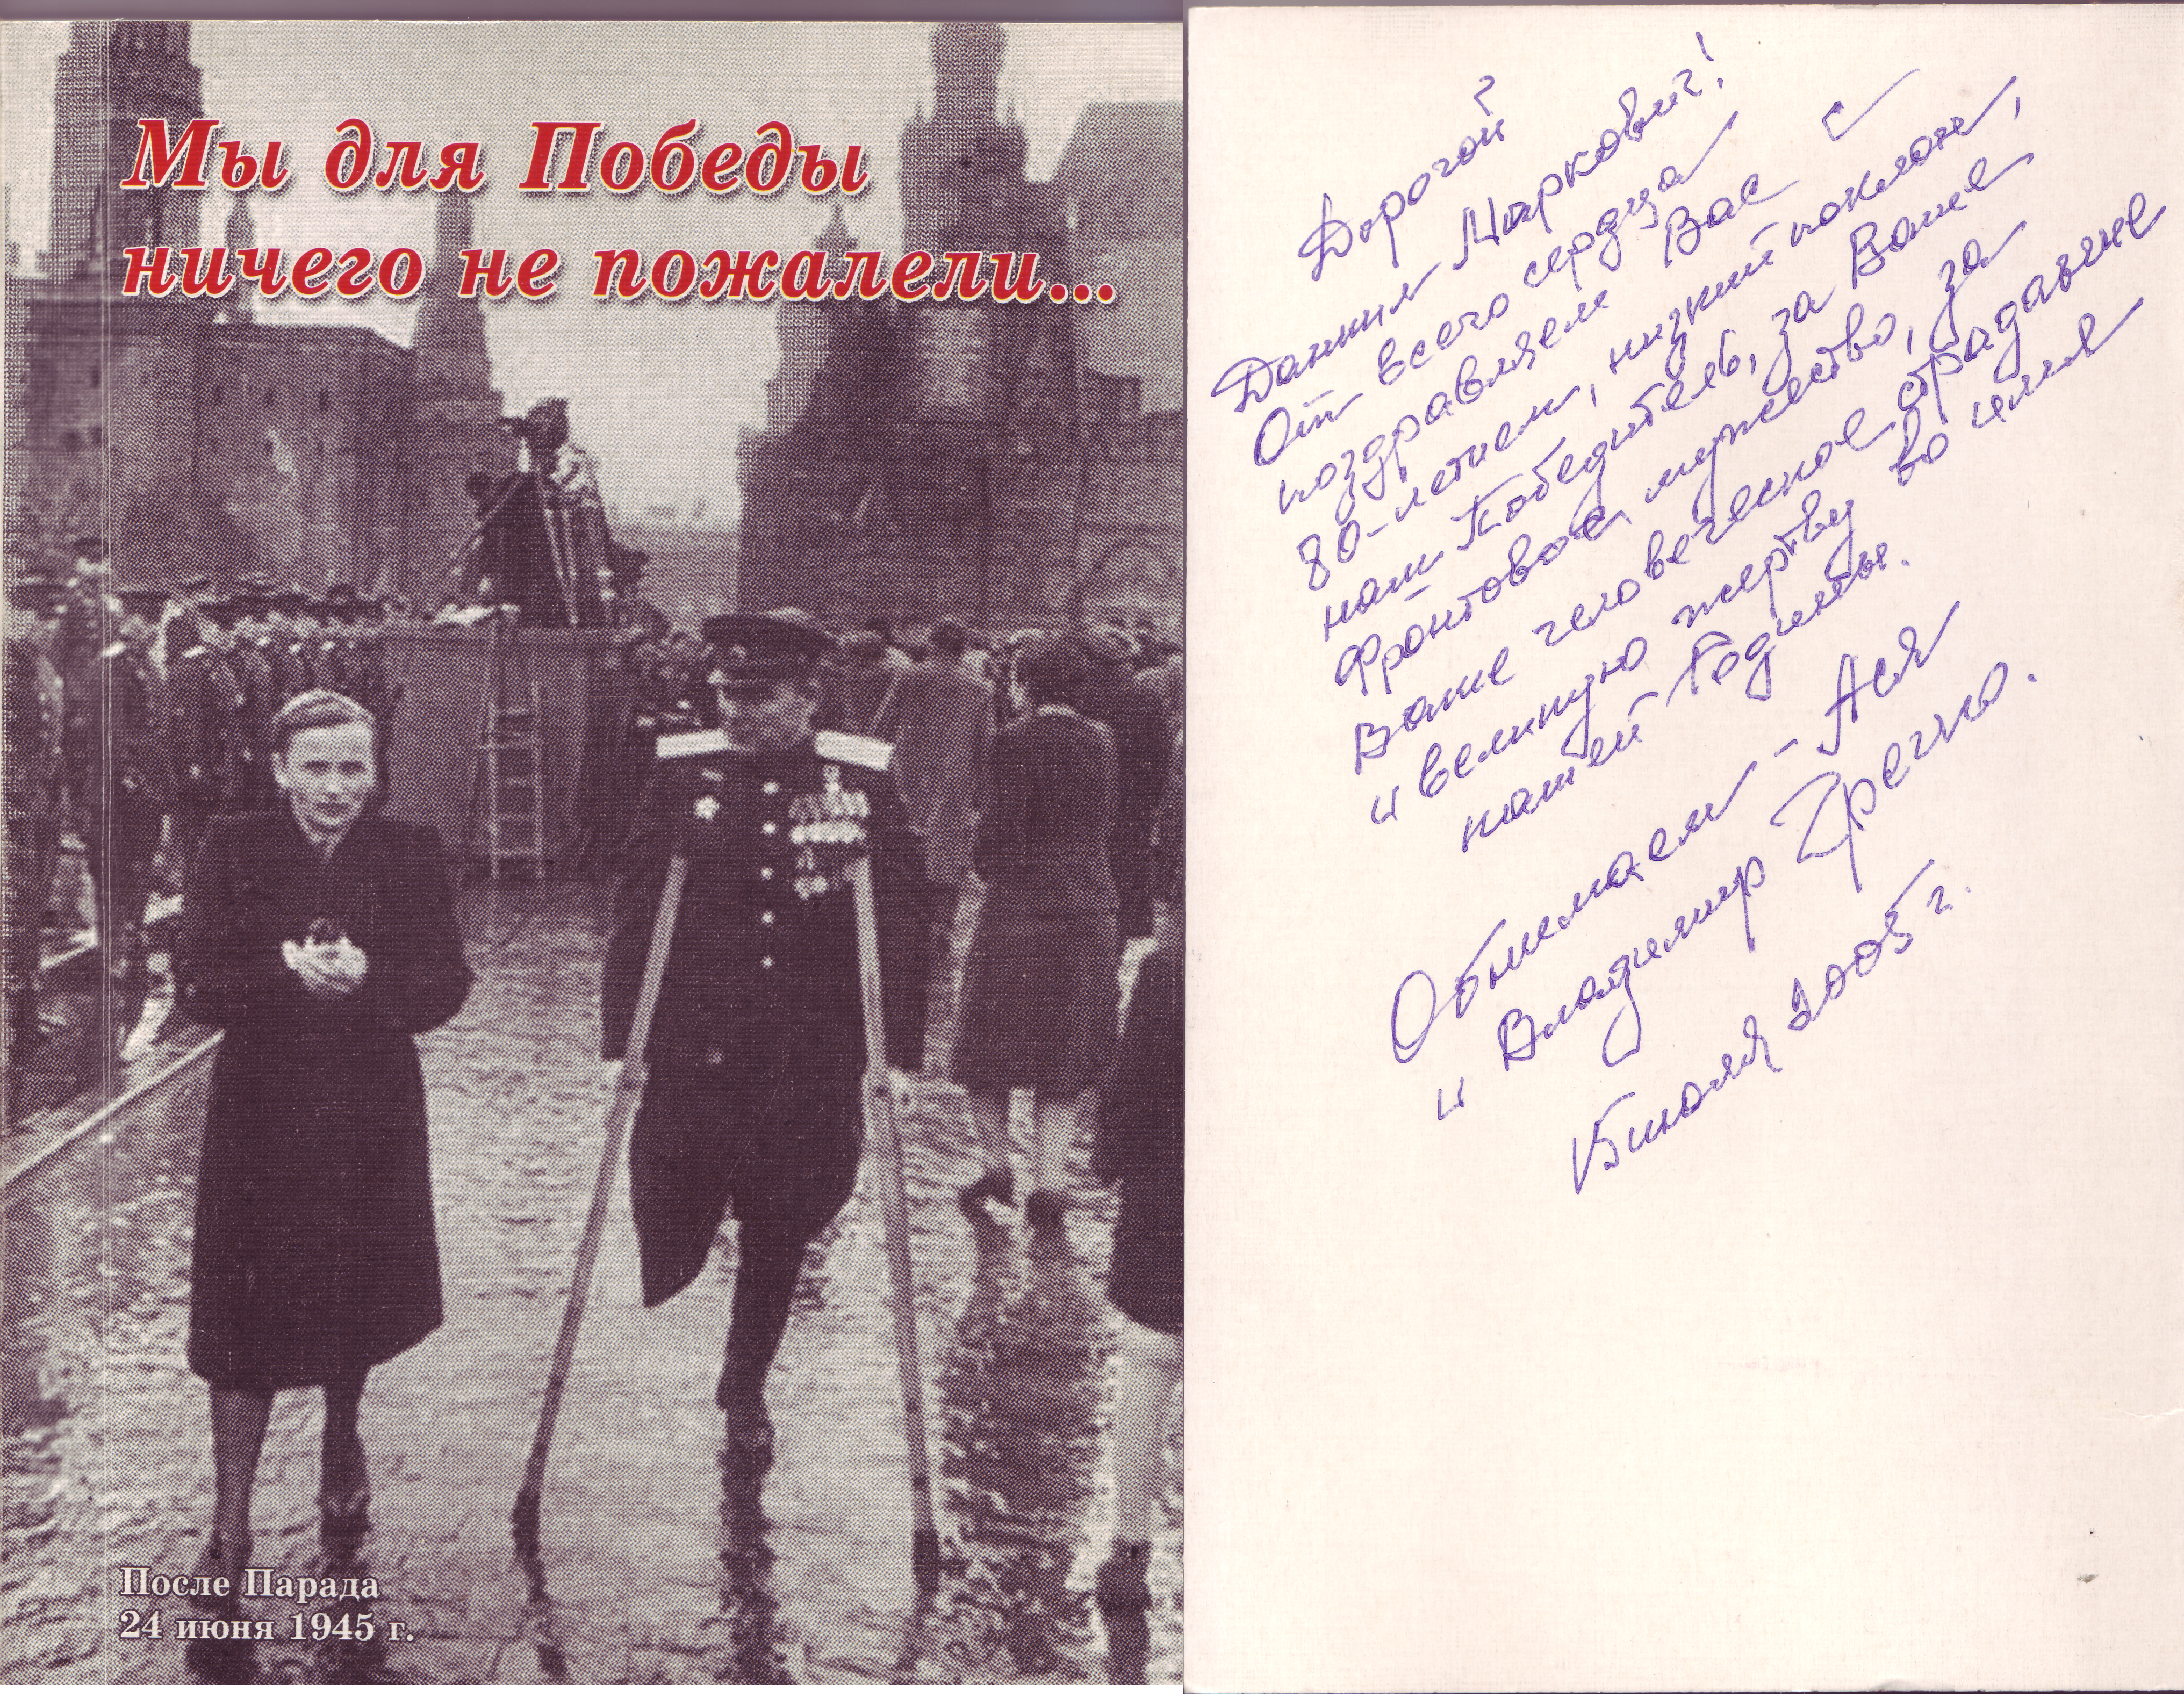 Мы для Победы
ничего не пожалели...
После Парада
24 июня 1945 г.
Дорогой
Даниил Маркович!
От всего сердца
поздравляем Вас с
80-летием, низкий поклон,
наш Победитель, за Ваше
фронтовое мужество, за
Ваше человеческое страдание
и великую жертву во имя
нашей Победы.
Обнимаем - Ася
и Владимир Гречко.
15 июля 2005 г.